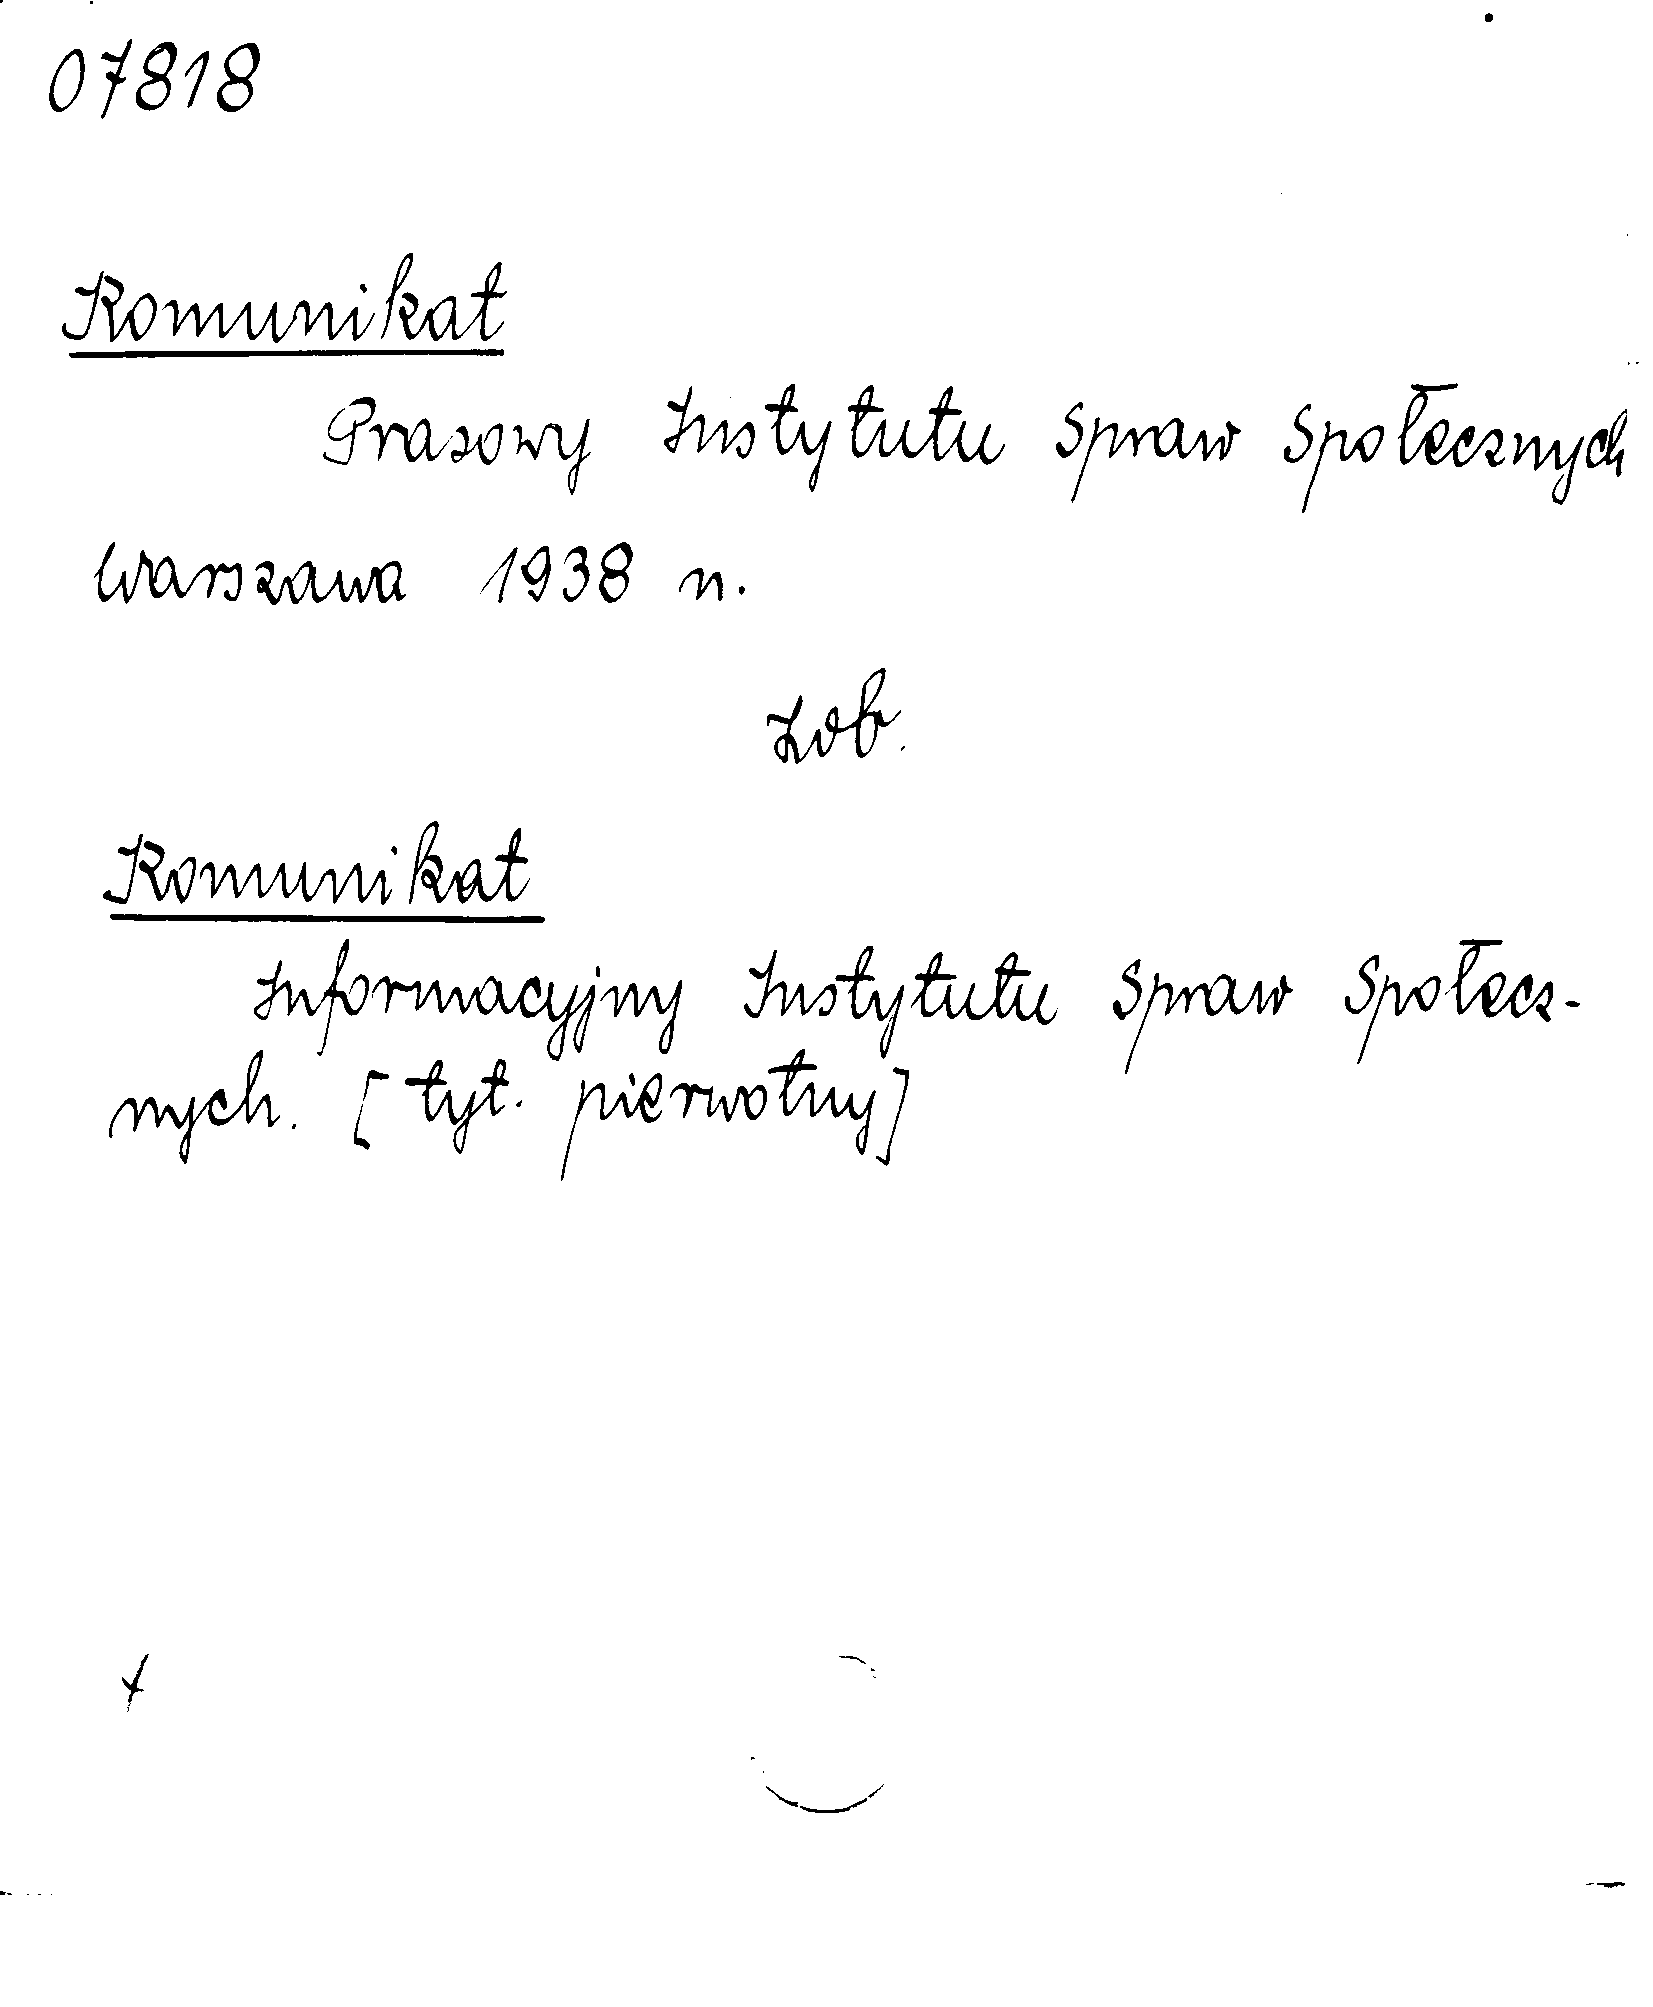 07818
Komunikat
Prasowy Instytutu Spraw Społecznych
Warszawa 1938 r.
Zob.
Komunikat
Informacyjny Instytutu Spraw Społecz-
nych. [tyt. pierwotny]